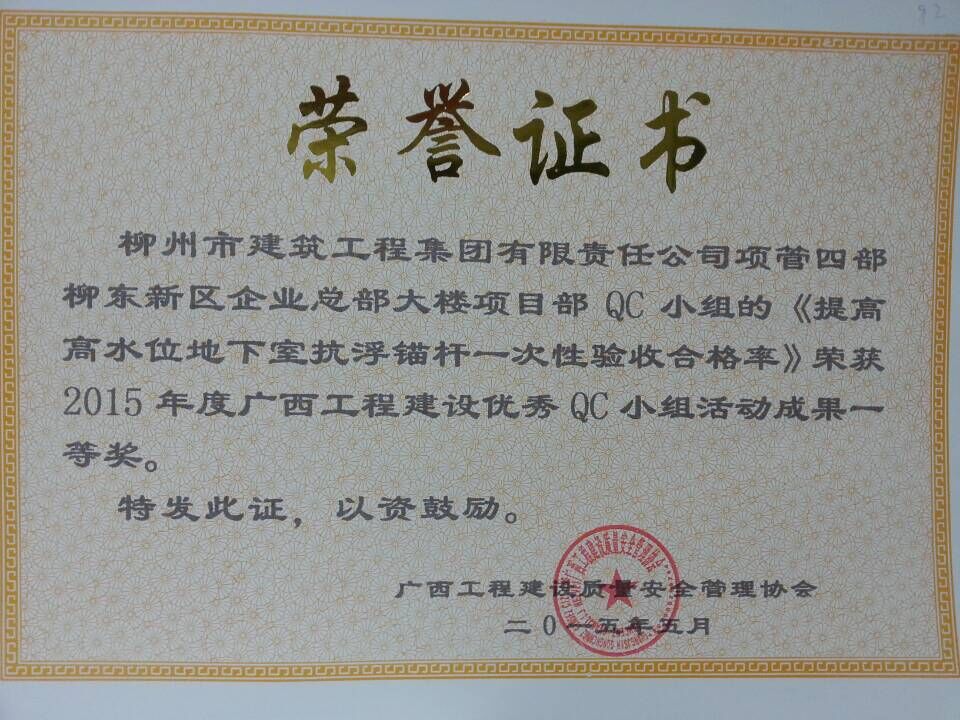 92
荣誉证书
柳州市建筑工程集团有限责任公司项营四部
柳东新区企业总部大楼项目部 QC 小组的《提高
高水位地下室抗浮锚杆一次性验收合格率》荣获
2015 年度广西工程建设优秀 QC 小组活动成果一
等奖。
特发此证，以资鼓励。
广西工程建设质量安全管理协会
二0一五年五月